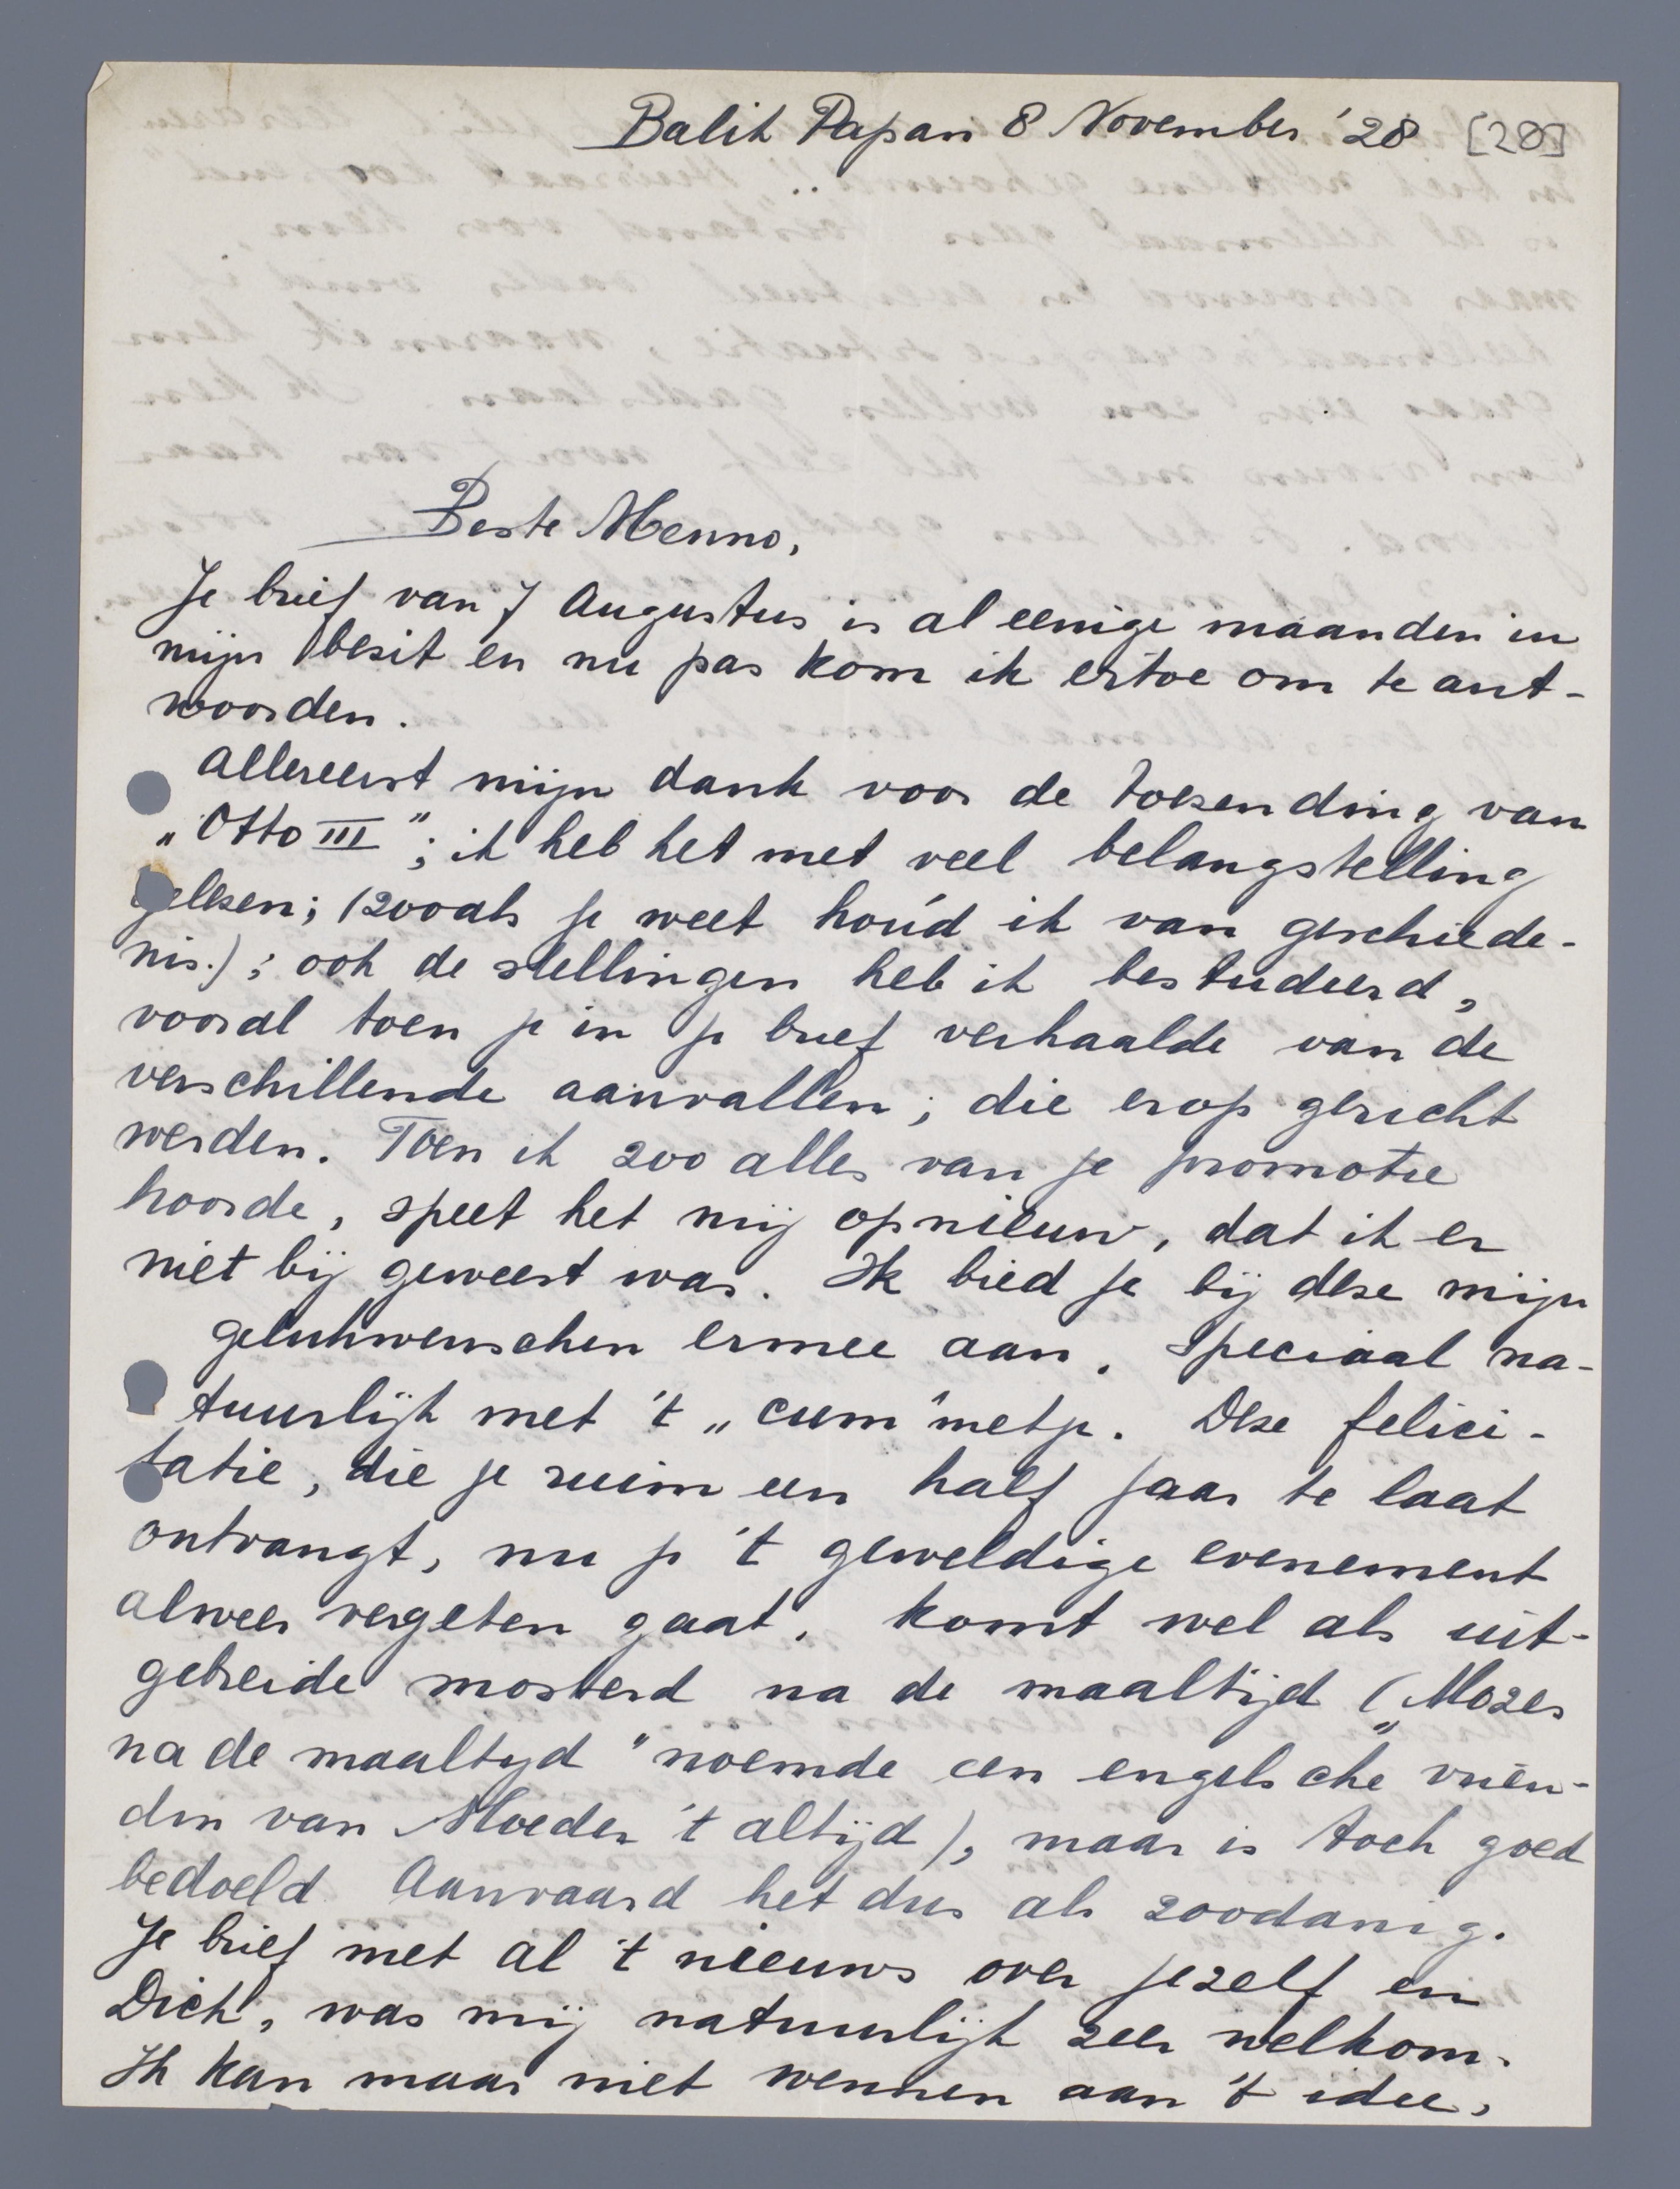 Balik Papan 8 November '28 [28]
Beste Menno,
Je brief van 7 Augustus is al eenige maanden in
mijn bezit en nu pas kom ik ertoe om te ant-
woorden.
Allereerst mijn dank voor de toezending van
„Otto III"; ik heb het met veel belangstelling
gelezen; (zooals je weet houd ik van geschiede-
nis.); ook de stellingen heb ik bestudeerd,
vooral toen je in je brief verhaalde van de
verschillende aanvallen, die erop gericht
werden. Toen ik zoo alles van je promotie
hoorde, speet het mij opnieuw, dat ik er
niet bij geweest was. Ik bied je bij deze mijn
gelukwenschen ermee aan, speciaal na-
tuurlijk met 't „cum" metje. Deze felici-
tatie, die je ruim een half jaar te laat
ontvangt, nu je 't geweldige evenement
alweer vergeten gaat, komt wel als uit-
gebreide mosterd na de maaltijd („Mozes
na de maaltyd" noemde een engelsche vrien-
din van Moeder 't altijd), maar is toch goed
bedoeld. Aanvaard het dus als zoodanig.
Je brief met al 't nieuws over jezelf en
Dick, was mij natuurlijk zeer welkom.
Ik kan maar niet wennen aan 't idee,